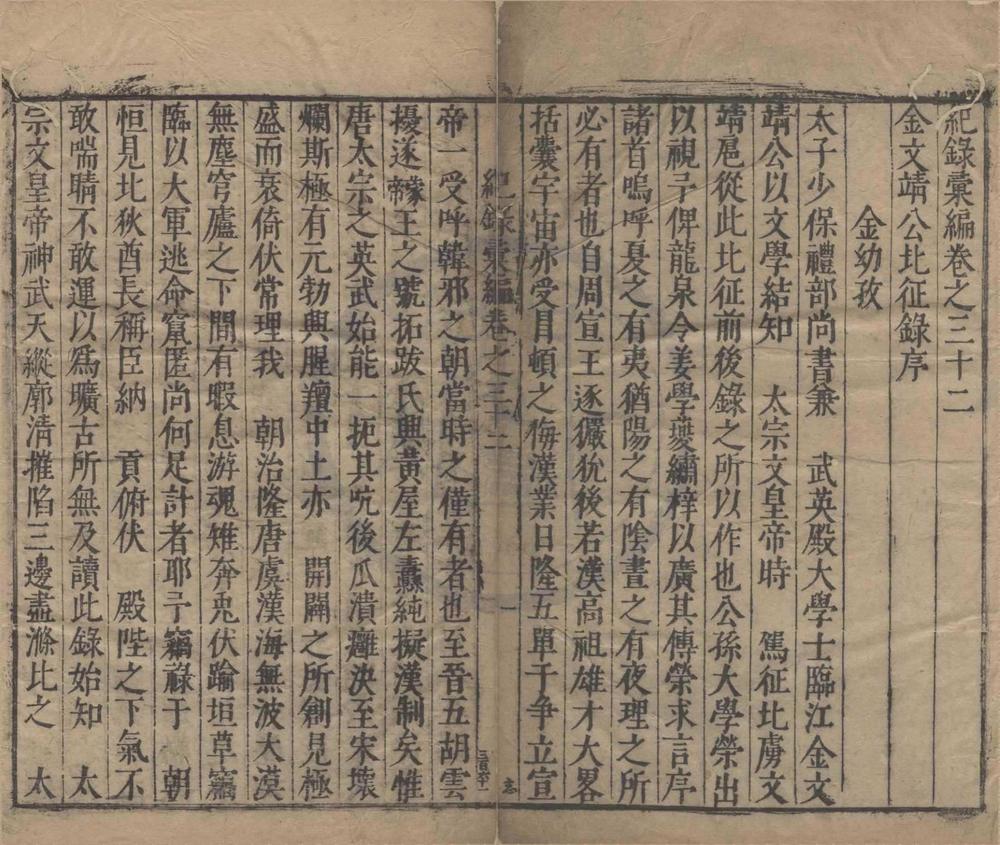 紀錄彙編卷之三十二
金文靖公北征錄序
金幼孜
太子少保禮部尚書兼　武英殿大學士臨江金文
靖公以文學結知　太宗文皇帝時　駕征北虜文
靖扈從此北征前後錄之所以作也公孫大學榮出
以視予俾龍泉令姜學夔繡梓以廣其傳榮求言序
諸首嗚呼夏之有夷猶陽之有陰晝之有夜理之所
必有者也自周宣王逐玁狁後若漢高祖雄才大畧
括囊宇宙亦受冒頓之侮漢業日隆五單于争立宣
紀錄彙編卷之三十二
一
帝一受呼韓邪之朝當時之僅有者也至晉五胡雲
擾遂帝王之號拓跋氏興黃屋左纛純擬漢制矣惟
唐太宗之英武始能一扼其吭後瓜潰癰決至宋壞
爛斯極有元勃興腥羶中土亦　開闢之所創見極
盛而衰倚伏常理我　朝治隆唐虞漢海無波大漠
無塵穹廬之下間有暇息游魂雉奔兎伏踰垣草竊
臨以大軍逃命竄匿尚何足計者耶予竊祿于　朝
恒見北狄酋長稱臣納　貢俯伏　殿陛之下氣不
敢喘睛不敢運以爲曠古所無及讀此錄始知　太
宗文皇帝神武天縱廓清摧陷三邊盡滌比之　太